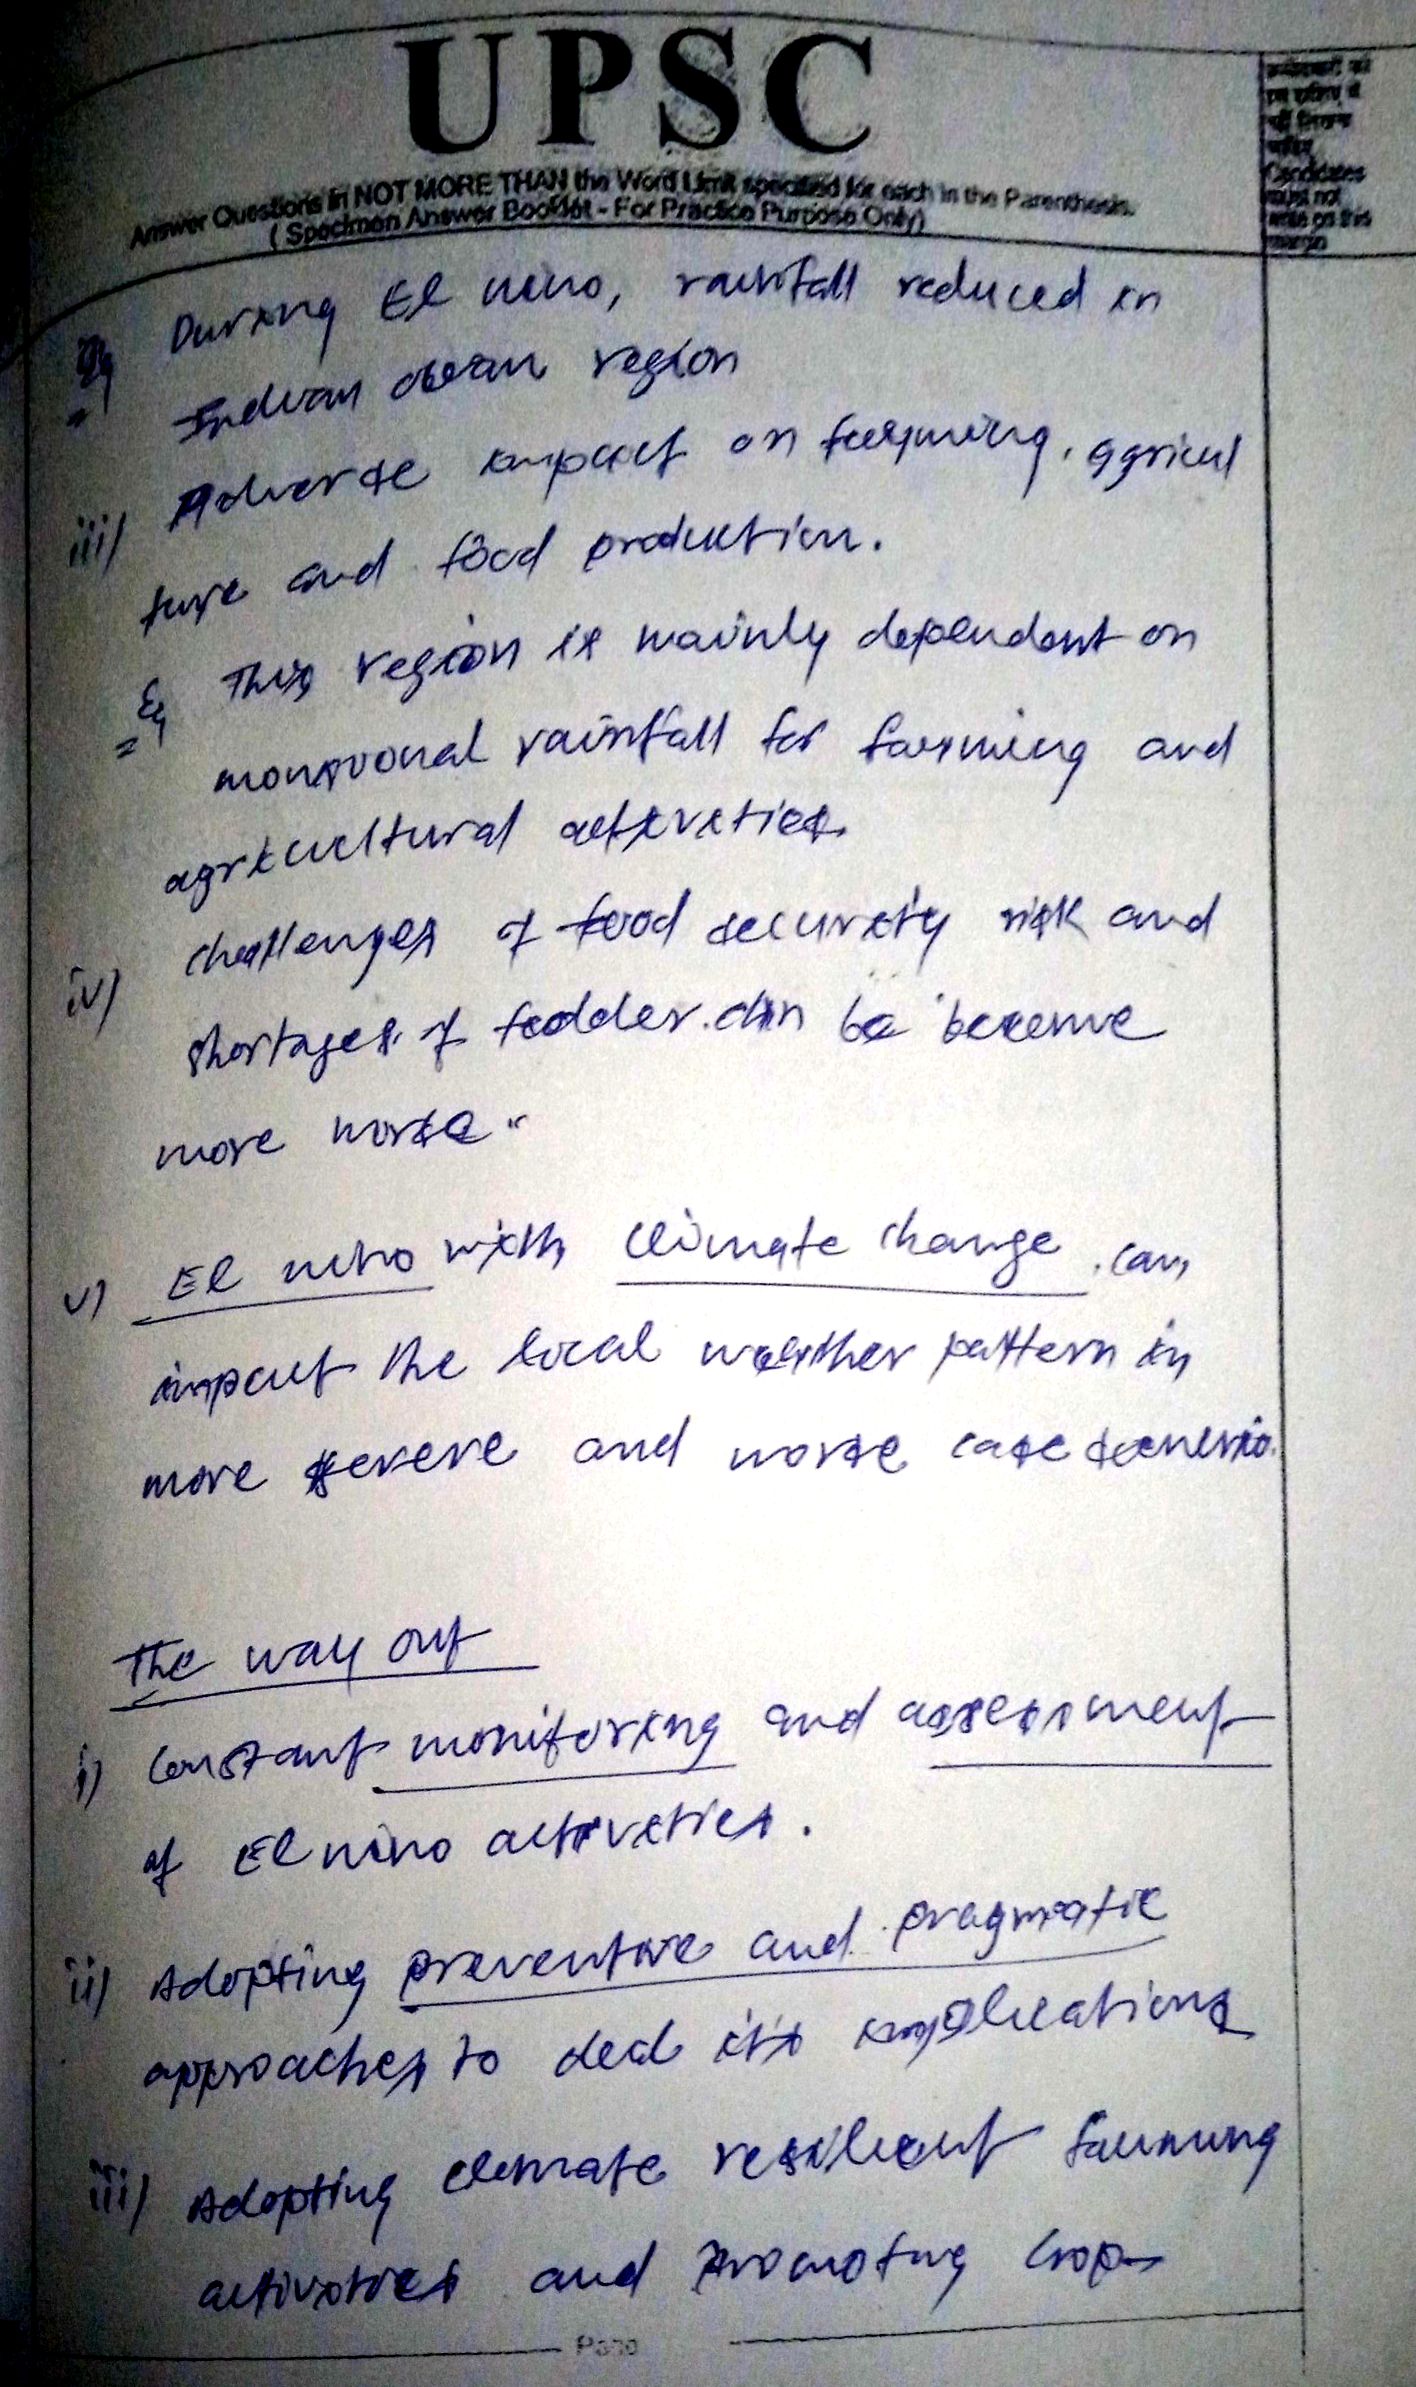 UPSC
Answer Questions in NOT MORE THAN the Word Limit specified for each in the Parenthesis.
( Specimen Answer Booklet - For Practice Purpose Only)
उम्मीदवारों को
इस हाशिए में
नहीं लिखना
चाहिए
Candidates
must not
write on this
margin
Eg During El nino, rainfall reduced in
Indian ocean region
iii) Adverse impact on farming, agricul
ture and food production.
Eg This region is mainly dependent on
monsoonal rainfall for farming and
agricultural activities.
iv) challenges of food security risk and
shortages of fodder can be become
more worse.
v) El nino with climate change can
impact the local weather pattern in
more severe and worse case scenerio.
The way out
i) Constant monitoring and assessment
of El nino activities.
ii) Adopting preventive and pragmatic
approaches to deal its implications
iii) Adopting climate resilient farming
activities and promoting crop
Page